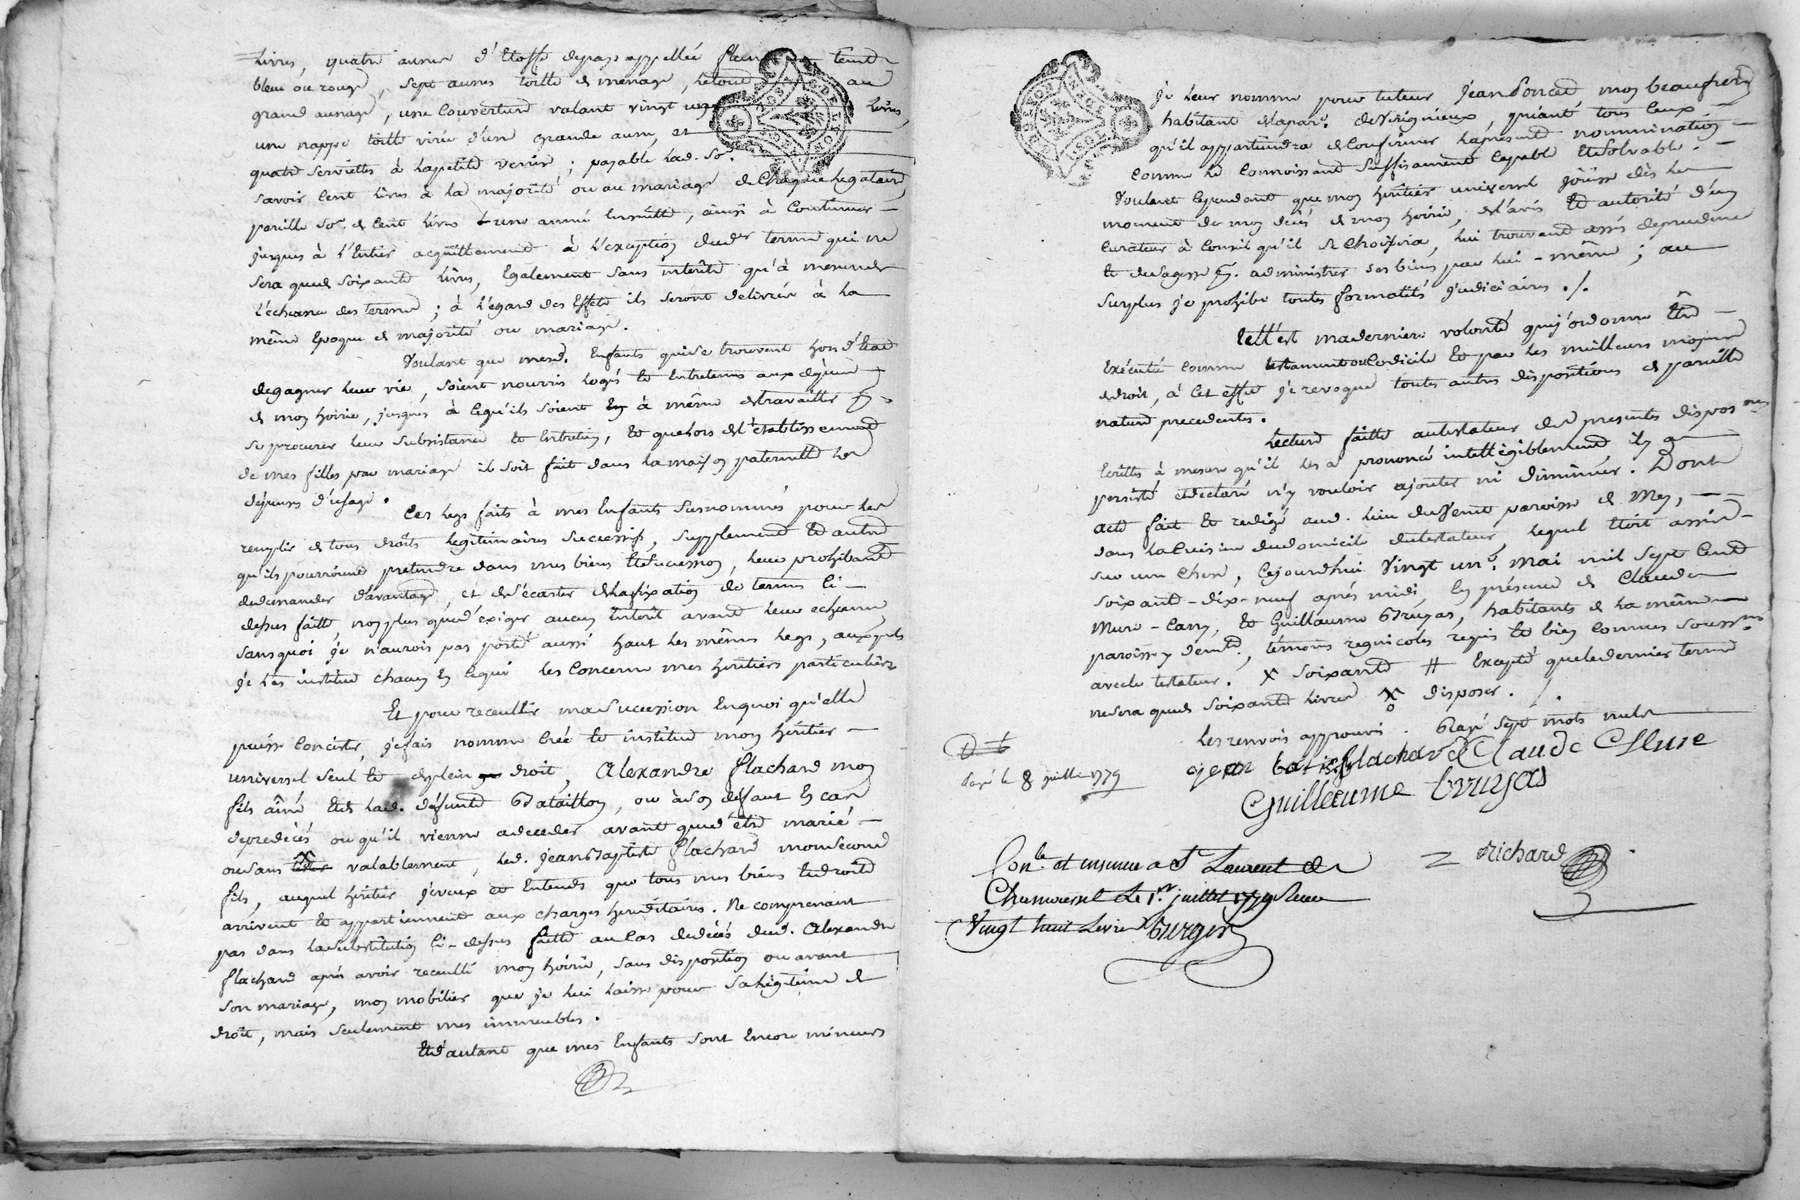 livres, quatre aunes d'Etoffe depays appellée teinte
bleu ou rouge, sept aunes toille de menage, letout au
grand aunage, une Couverture valant vingt livres,
une nappe toille virée d'une grande aune, et
quatre serviettes à lapetite venise ; payable lad. So.e
savoir Cent livres à la majorité ou au mariage de Chaque legataire,
pareille So.e de Cent livres Lune année Ensuitte, ainsi à Continuer
jusques à l'Entier acquittement à l'exception dud.er terme qui ne
sera quede soixante livres, Egalement sans interêts qu'à mesure de
l'écheance des termes ; à l'égard des Effets ils seront delivrés à la
même Epoque de majorité ou mariage.
Voulant que mesd. Enfants quise trouveront hors d'Etat
degagner leur vie, soient nourris logés et Entretenus aux dépens
de mon hoirie, jusques à cequ'ils soient En à même detravailler p.r
se procurer leur subsistance et Entretien, et quelors de l'établissement
de mes filles par mariage il soit fait dans la maison paternelle les
dépenses d'usage.
Ces legs faits à mes Enfants susnommés pour les
remplir de tous droits legitimaires successifs, supplement et autres
qu'ils pourroient pretendre dans mes biens et succession, leur prohibant
dedemander d'avantage, et de s'écarter de la fixation de termes Ci-
dessus faitte, non plus que d'éxiger aucun interêt avant leur echeance
sans quoi je n'aurois pas porté aussi haut les mêmes legs, auxquels
je les institue chacun En cequi les concerne mes heritiers particuliers
Et pour recueillir ma succession En quoi qu'elle
puisse Concister, je fais nomme Crée et institue mon héritier
universel seul et deplein droit, Alexandre flachard mon
fils aîné et de lad. défunte Bataillon, ou à son deffaut En cas
de predecés ou qu'il vienne adeceder avant que d'être marié
ou sans valablement, led. jean Baptiste flachard monsecond
fils, auquel héritier je veux et Entends que tous mes biens et droits
arrivent et appartiennent aux charges hereditaires. Ne comprenant
pas dans la substitution Ci-dessus faitte au Cas dedecés dud. Alexandre
flachard aprés avoir recueilli mon hoirie, sans disposition ou avant
son mariage, mon mobilier que je lui laisse pour sa legitime de
droit, mais seulement mes immeubles.
Et d'autant que mes Enfants sont Encore mineurs
je leur nomme pour tuteur Jean Poncet mon beaufrere
habitant de la par.e de Virignieux, priant tous Ceux
qu'il appartiendra de Confirmer la presente nomination
Comme le Connoissant suffisament Capable et solvable.
Voulant Cependant que mon héritier universel joüisse dès le
moment de mon décès de mon hoirie, de l'avis et autorité d'un
Curateur à Conseil qu'il se Choisira, lui trouvant assés deprudence
et de sagesse p.r administrer ses biens par lui-même ; au
surplus je prohibe toutes formalités judiciaires ./.
telle est ma derniere volonté que j'ordonne Etre
Exécutée comme testament ou Codicile et par les meilleurs moyens
de droit, à Cet effet je revoque toutes autres dispositions de pareille
nature precedentes.
Lecture faitte autestateur des presentes dispos.ons
Ecrittes à mesure qu'il les a prononcé intelligiblement il y a
persisté et declaré n'y vouloir ajouter ni diminuer. Dont
acte fait et redigé aud. lieu paroisse de Meys,
dans la Cuisine du domicile dutestateur, lequel Etoit assis
sur une Chese, Cejourdhui Vingt un.e mai mil sept Cent
soixante-dix-neuf aprés midi En présence de Claude
Mure-Carry, et Guillaume Bruyas, habitants de la même
paroisse y demt, témoins regnicoles requis et bien Connus souss.nes
avec le testateur. x soixante # Excepté que le dernier terme
ne sera quede soixante livres x disposer. /.
les renvois approuvés. Rayé sept mots nuls
jean batiste flachard Claude Mure
Guillaume bruyas
payé le 8 juillet 1779
Richard
Con.lé et insinué a St Laurent de
Chamousset Le 1.er juillet 1779 Reçu
Vingt huit Livres